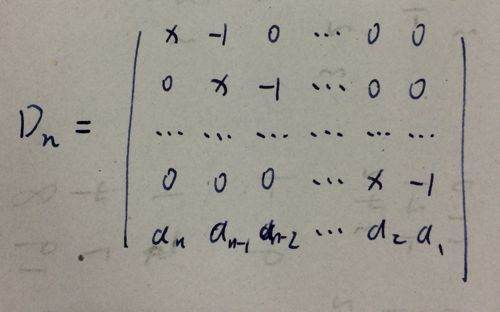 x -1 0 ... 0 0
0 x -1 ... 0 0
Dn =
... ... ... ... ... ...
0 0 0 ... x -1
an an-1 an-2 ... a2 a1